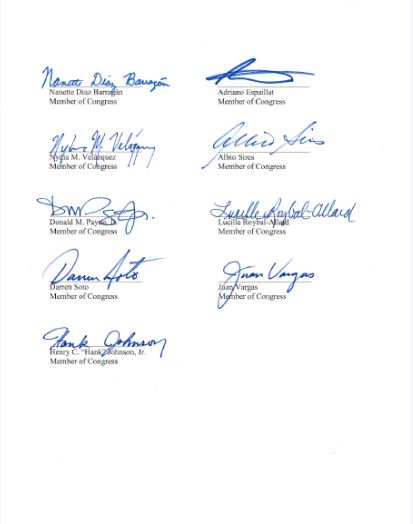 Nanette Diaz Barragán
Nanette Diaz Barragán
Member of Congress
Adriano Espaillat
Member of Congress
Nydia M. Velázquez
Nydia M. Velázquez
Member of Congress
Albio Sires
Albio Sires
Member of Congress
Donald M. Payne, Jr.
Member of Congress
Lucille Roybal-Allard
Lucille Roybal-Allard
Member of Congress
Darren Soto
Darren Soto
Member of Congress
Juan Vargas
Juan Vargas
Member of Congress
Hank Johnson
Henry C. "Hank" Johnson, Jr.
Member of Congress